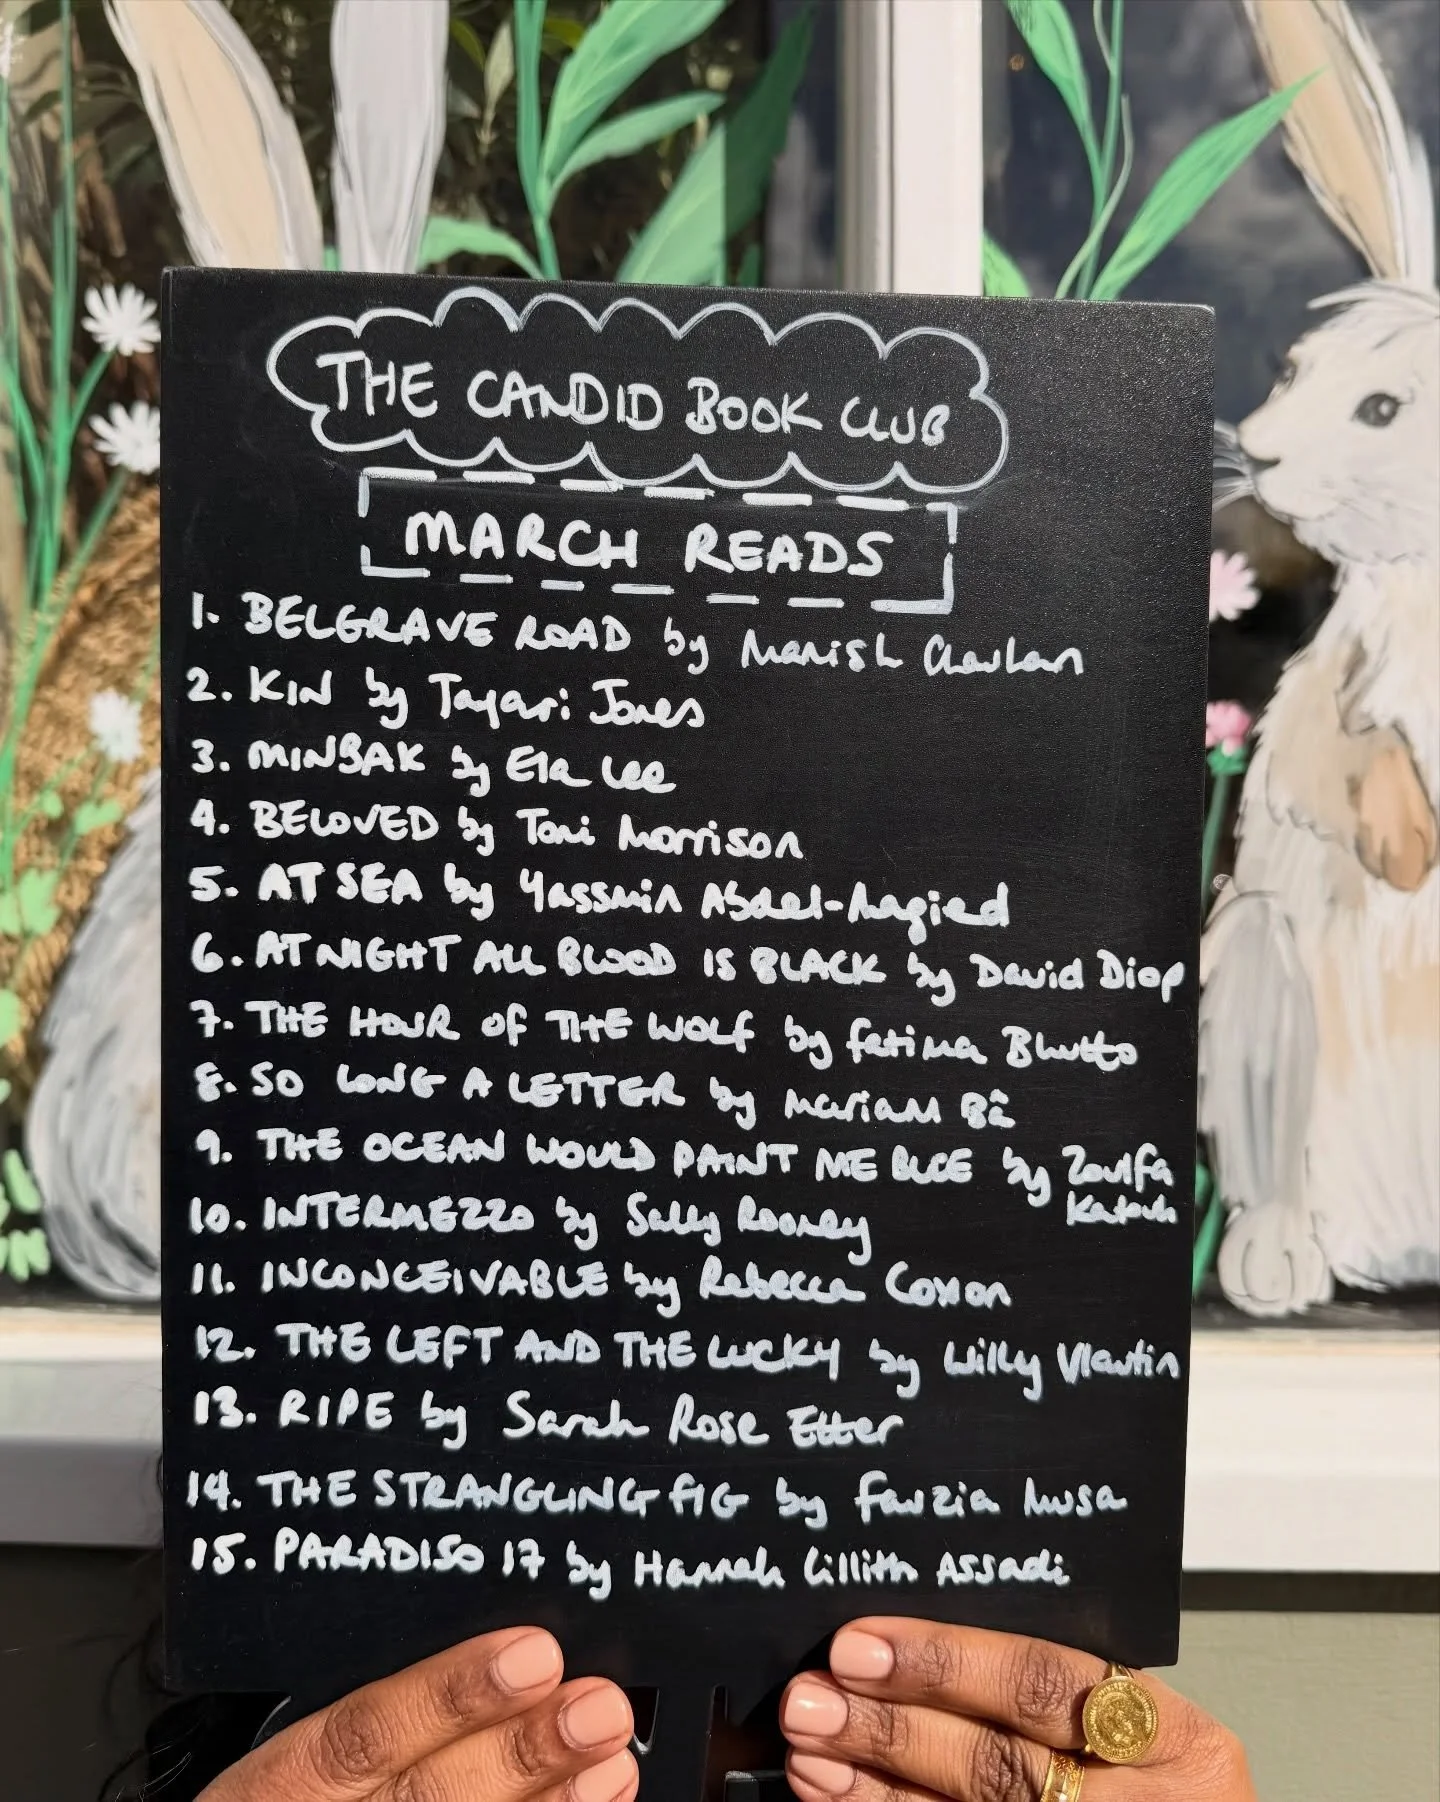 THE CANDID BOOK CLUB
MARCH READS
1. BELGRAVE ROAD by Manish Chauhan
2. KIN by Tayari Jones
3. MINBAK by Ela Lee
4. BELOVED by Toni Morrison
5. AT SEA by Yassmin Abdel-Magied
6. AT NIGHT ALL BLOOD IS BLACK by David Diop
7. THE HOUR OF THE WOLF by Fatima Bhutto
8. SO LONG A LETTER by Mariam Bâ
9. THE OCEAN WOULD PAINT ME BLUE by Zoulfa
Katouh
10. INTERMEZZO by Sally Rooney
11. INCONCEIVABLE by Rebecca Coxon
12. THE LEFT AND THE LUCKY by Willy Vlautin
13. RIPE by Sarah Rose Etter
14. THE STRANGLING FIG by Fauzia Musa
15. PARADISO 17 by Hannah Lillith Assadi